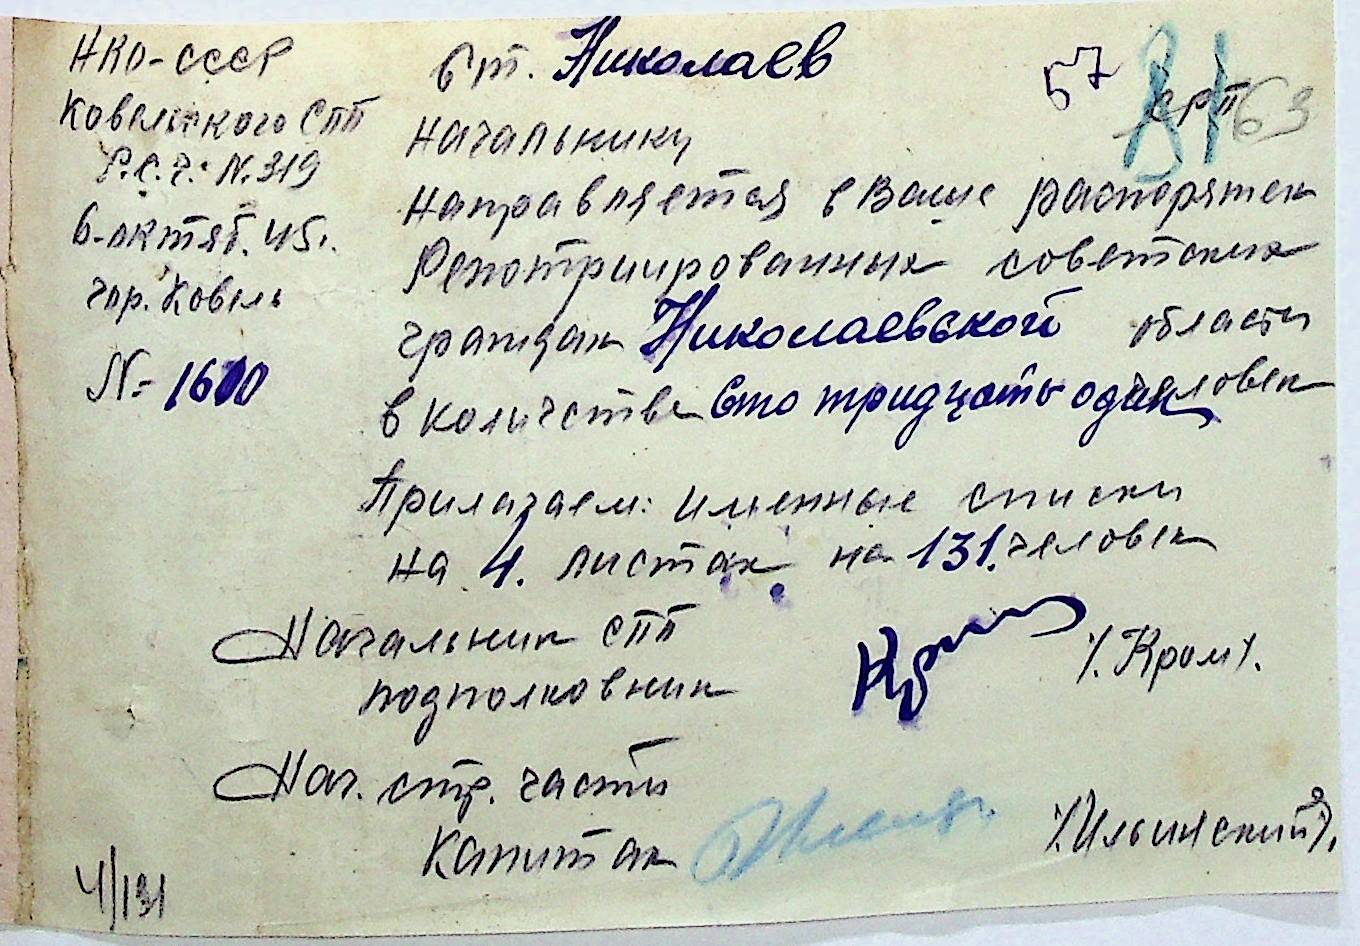 НКО-СССР
Ковельского СПП
Р.С.Ч. N.319
6-октяб. 45г.
гор. Ковель
N= 1600
ст. Николаев
57
81
СРП
63
Начальнику
Направляется в Ваше распоряжен
Репотриированных советских
граждан Николаевской области
в количестве Сто тридцать один человек
Прилагаем: именные списки
на 4. листах на 131. человек
Начальник СПП
подполковник
/. Кром /.
Нач. стр. части
Капитан
/. Ильинский /.
4/131